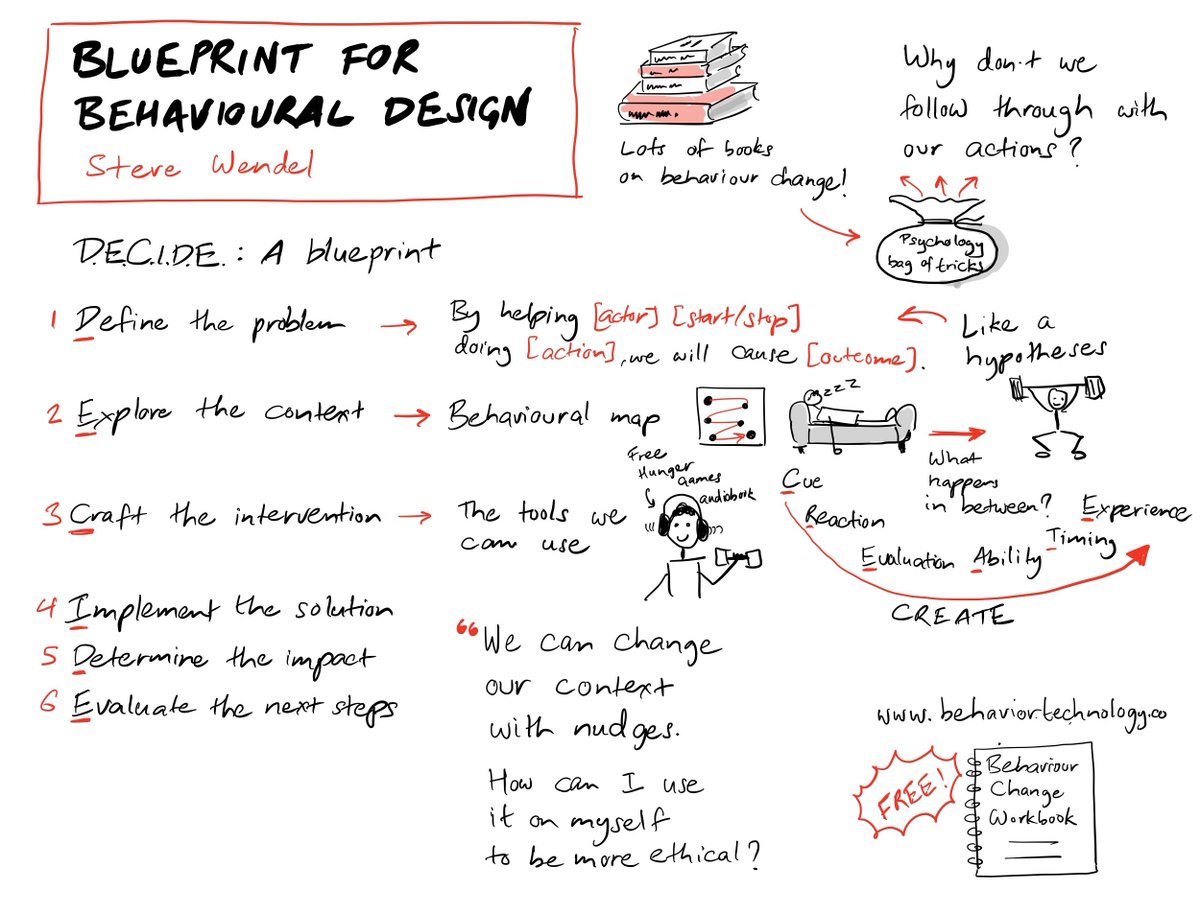 BLUEPRINT FOR
BEHAVIOURAL DESIGN
Steve Wendel
Lots of books
on behaviour change!
Why don't we
follow through with
our actions?
Psychology
bag of tricks
D.E.C.I.D.E. : A blueprint
1 Define the problem
By helping [actor] [start/stop]
doing [action], we will cause [outcome].
Like a
hypotheses
2 Explore the context
Behavioural map
zzzz
What
happens
in between?
3 Craft the intervention
The tools we
can use
Free
Hunger
Games
audiobook
Cue
Reaction
Evaluation
Ability
Timing
Experience
CREATE
4 Implement the solution
5 Determine the impact
6 Evaluate the next steps
“We can change
our context
with nudges.
How can I use
it on myself
to be more ethical?
www.behaviortechnology.co
FREE!
Behaviour
Change
Workbook